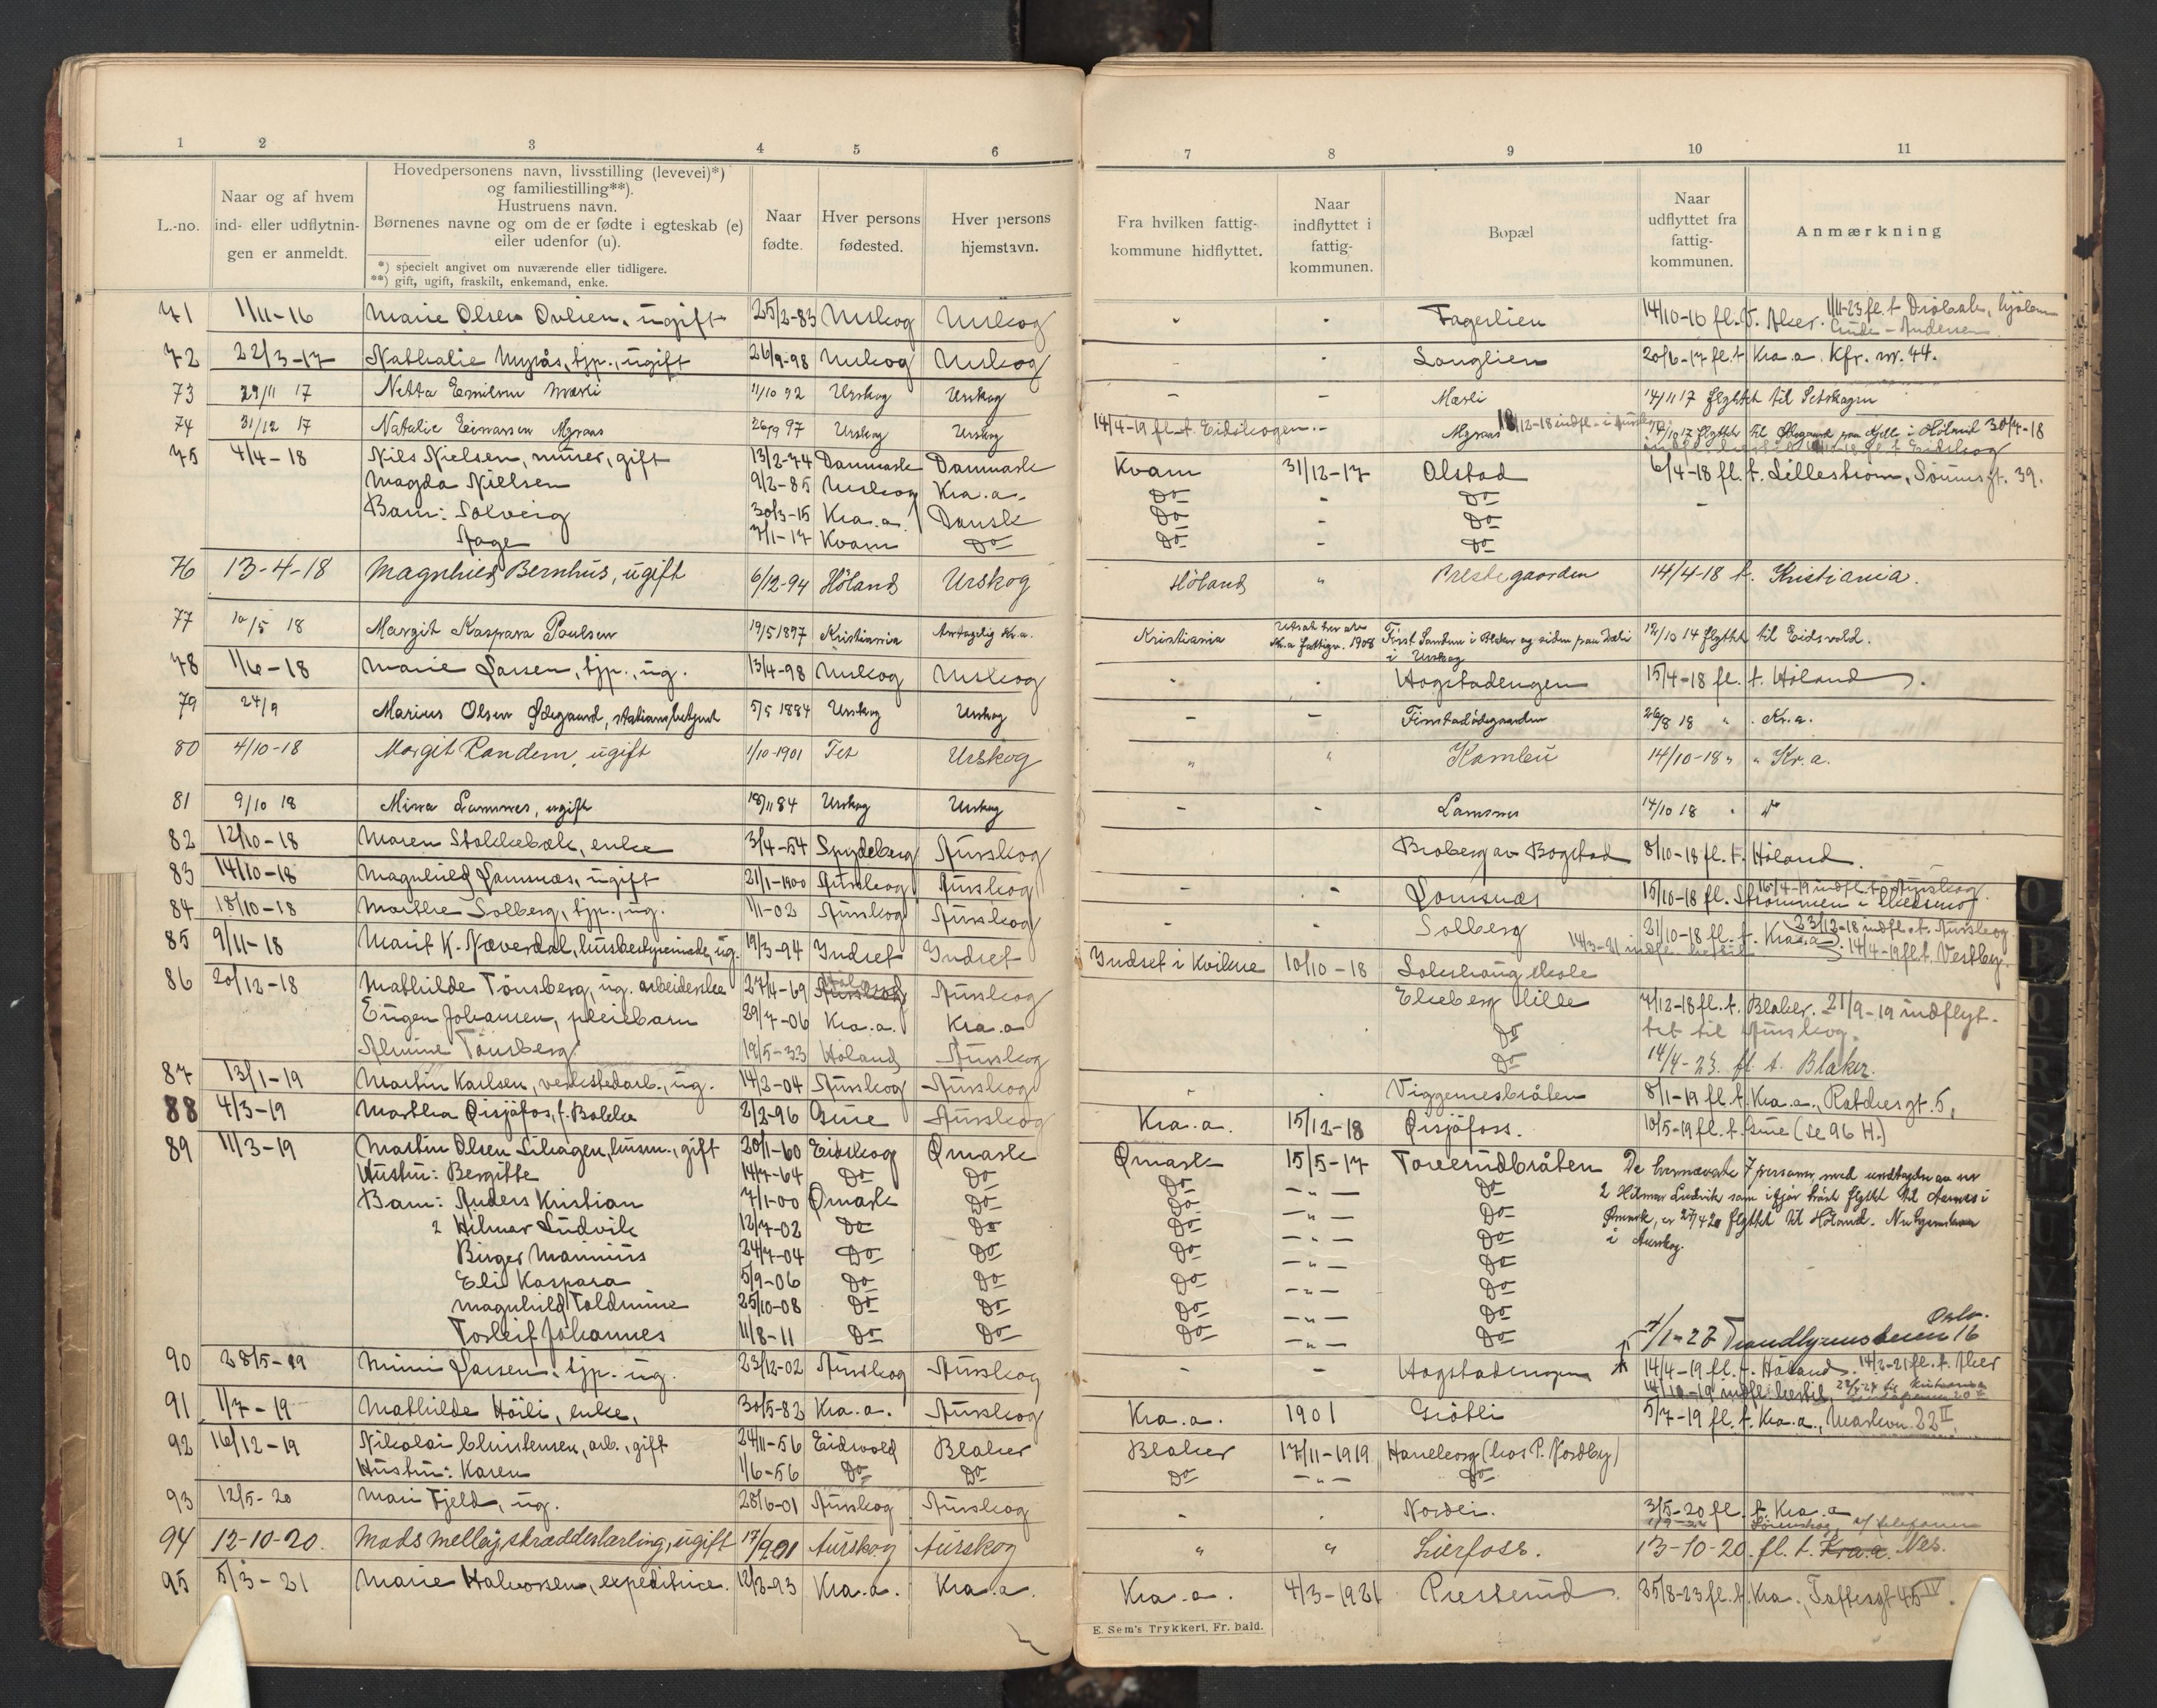 1 2 3 4 5 6 7 8 9 10 11
L.-no.
Naar og af hvem
ind- eller udflytnin-
gen er anmeldt.
Hovedpersonens navn, livsstilling (levevei)*)
og familiestilling**).
Hustruens navn.
Børnenes navne og om de er fødte i egteskab (e)
eller udenfor (u).
*) specielt angivet om nuværende eller tidligere.
**) gift, ugift, fraskilt, enkemand, enke.
Naar
fødte.
Hver persons
fødested.
Hver persons
hjemstavn.
Fra hvilken fattig-
kommune hidflyttet.
Naar
indflyttet i
fattig-
kommunen.
Bopæl
Naar
udflyttet fra
fattig-
kommunen.
Anmærkning
71 1/11-16 Marie Olsen ugift 25/2-83 Urskog Urskog - - Fagerlien 14/10-16 fl. t. Aker. 1/11-23 fl. t.
72 22/3-17 Nathalie Myrås, tjp., ugift 26/9-98 Urskog Urskog - - Langlien 20/6-17 fl. t. Kra.a. Kfr. nr. 44.
73 29/11 17 Netta Emilsen Mærli 11/10 92 Urskog Urskog - - Mærli 14/11 17 flyttet til Setskogen
74 31/12 17 Natalie Einarsen Myraas 26/9 97 Urskog Urskog 14/4-19 fl. t. Eidskogen - Myraas 18/12-18 indfl. i flyttet til i Höland 30/4-18
75 4/4-18 Nils Nielsen, murer, gift 13/2-74 Danmark Danmark Kvam 31/12-17 Olstad 6/4-18 fl. t. Lilleström, 39.
Magda Nielsen 9/2-85 Urskog Kra.a. Do - Do
Barn: Solveig 30/3-15 Kra.a. Dansk Do - Do
Aage 7/1-17 Kvam Do Do - Do
76 13-4-18 Magnhild Bernhus, ugift 6/12-94 Höland Urskog Höland " Prestegaarden 14/4-18 t. Kristiania.
77 10/5 18 Margit Kaspara Paulsen 19/5 1897 Kristiania Antagelig Kr.a. Kristiania Utsat her av Kr.a fattigv. 1908 Först Sanden i Blaker og siden paa i Urskog 12/10 14 flyttet til Eidsvold.
78 1/6-18 Marie Larsen, tjp., ug. 13/4-98 Urskog Urskog - - Hogstadengen 15/4-18 fl. t. Höland
79 24/9 Marius Olsen Ødegaard, stationsbetjent 5/5 1884 Urskog Urskog - - Finstadödegaarden 26/8 18 " Kr.a.
80 4/10-18 Margit Randem, ugift 1/10-1901 Fet Urskog " " Kambu 14/10-18 " " Kr.a.
81 9/10 18 Mina Lamsnes, ugift 18/11 84 Urskog Urskog - - Lamsnes 14/10 18 " do
82 12/10-18 Maren Stokkebæk, enke 3/4-54 Spydeberg Aurskog Broberg av Bogstad 8/10-18 fl. t. Höland.
83 14/10-18 Magnhild Lamsnæs, ugift 21/1-1900 Aurskog Aurskog - - Lomsnæs 15/10-18 fl. Strömmen i Skedsmo 16/4-19 indfl. t. Aurskog
84 18/10-18 Marthe Solberg, tjp., ug. 1/1-02 Aurskog Aurskog - - Solberg 21/10-18 fl. t. Kra.a. 23/12-18 indfl. t. Aurskog. 14/4-19 fl. t. Vestby.
85 9/11-18 Marit K. Næverdal, husbestyrerinde, ug. 19/3-94 Indset Indset Indset i Kvikne 10/10-18 Lokshaug skole 14/3-21 indfl. hertil
86 20/12-18 Mathilde Tönsberg, ug. arbeiderske 27/4-69 Höland Aurskog Ekeberg lille 7/12-18 fl. t. Blaker. 21/9-19 indflyt-
Eugen Johansen, pleiebarn 29/7-06 Kra.a. Kra.a Do tet til Aurskog.
Tönsberg 19/5-33 Höland Aurskog Do 14/4-23 fl. t. Blaker.
87 13/1-19 Martin Karlsen, verkstedarb., ug. 14/2-04 Aurskog Aurskog - - Viggenesbråten 8/1-19 fl. t. Kra.a., gt. 5.
88 4/3-19 Martha Øisjöfos, f. Bakke 2/2-96 Grue Aurskog Kra.a. 15/12-18 Øisjöfoss. 10/5-19 fl. t. Grue (se 96 H.)
89 11/3-19 Martin Olsen Lihagen, husm., gift 20/1-60 Eidskog Ømark Ømark 15/5-17 Toverudbråten De hernævnte 7 personer, med undtagelse av nr
Hustru: Bergitte 14/7-64 Do Do Do -"- Do 2 Hilmar Ludvik som flyttet til i
Barn: Anders Kristian 7/1-00 Ømark Do Do -"- Do Ømark, er 27/4 20 flyttet til Höland.
2 Hilmar Ludvik 12/7-02 Do Do Do -"- Do i Aurskog.
Birger Marinius 24/7-04 Do Do Do -"- Do
Eli Kaspara 5/9-06 Do Do Do -"- Do
Magnhild Toldmine 25/10-08 Do Do Do -"- Do
Torleif Johannes 11/8-11 Do Do Do -"- Do
7/1-27 Trondhjemsveien 16 Oslo.
90 28/5-19 Mimi Larsen, tjp. ug. 23/12-02 Aurskog Aurskog - - Hogstadengen 14/4-19 fl. t. Höland. 14/2-21 fl. t. Aker
14/10-19 indfl. hertil,
91 1/7-19 Mathilde Höili, enke, 30/5-82 Kra.a. Aurskog Kra.a. 1901 Grötli 5/7-19 fl. t. Kra.a., 22 II.
92 16/12-19 Nikolai Christensen, arb., gift 24/11-56 Eidsvold Blaker Blaker 17/11-1919 Haneborg (hos P. Nordby)
Hustru: Karen 1/6-56 Do Do Do -"- Do
93 12/5-20 Mari Fjeld, ug. 28/6-01 Aurskog Aurskog - - Nordli. 3/5-20 fl. t. Kra.a
94 12-10-20. Mads Melby, skrædderlærling, ugift 17/9 01 Aurskog Aurskog " " Lierfoss. 13-10-20. fl. t. Kra.a. Nes.
95 5/3-21 Marie Halvorsen, expeditrice. 12/3-93 Kra.a. Kra.a. Kra.a. 4/3-1921 Presterud 25/8-23 fl. t. Kra., Toftesgt 45 IV.
E. Sem's Trykkeri, Fr. hald.
O P Q R S T U V W